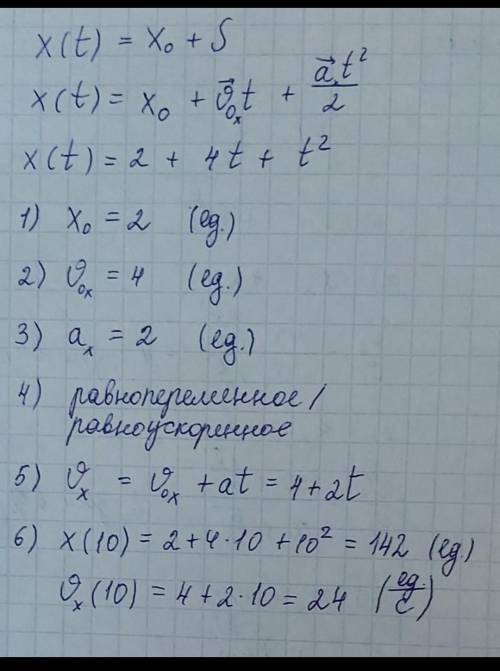 x(t) = x₀ + S
x(t) = x₀ + v⃗₀ₓt + a⃗ₓt²/2
x(t) = 2 + 4t + t²
1) x₀ = 2 (ед.)
2) v₀ₓ = 4 (ед.)
3) aₓ = 2 (ед.)
4) равнопеременное /
равноускоренное
5) vₓ = v₀ₓ + at = 4 + 2t
6) x(10) = 2 + 4·10 + 10² = 142 (ед.)
vₓ(10) = 4 + 2·10 = 24 (ед/с)